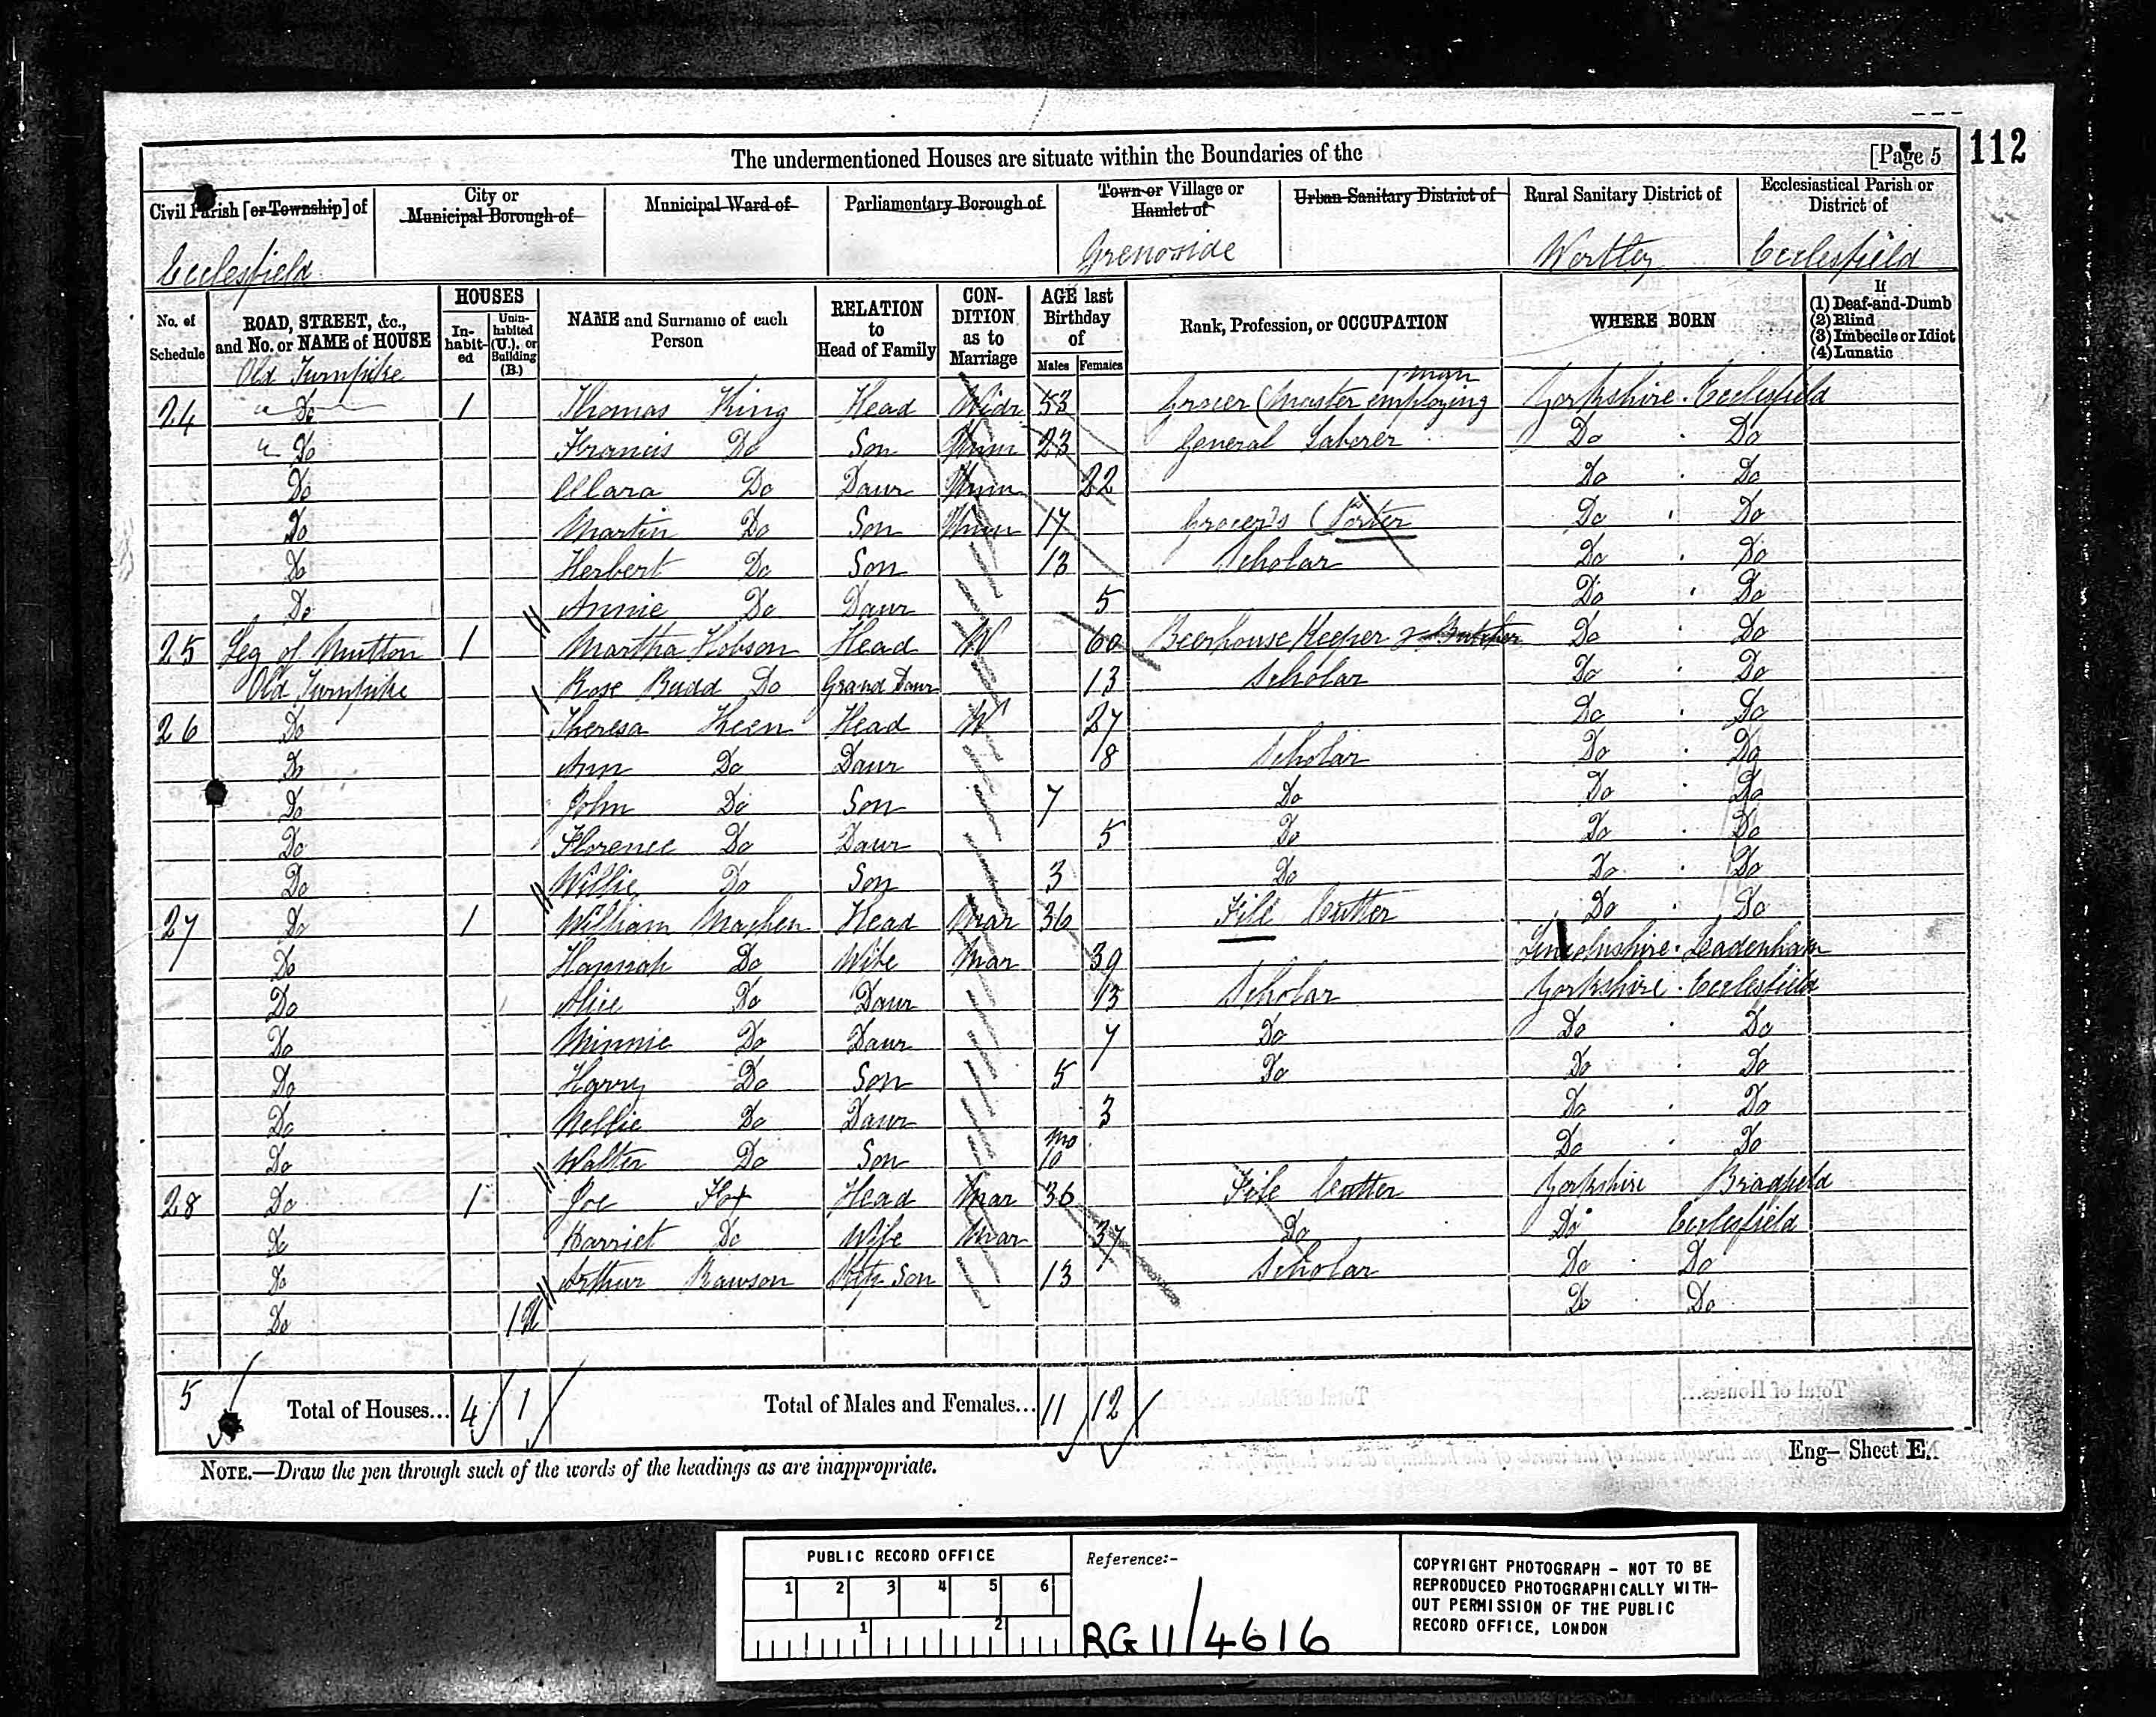 The undermentioned Houses are situate within the Boundaries of the
[Page 5
112
Civil Parish [or Township] of
City or Municipal Borough of
Municipal Ward of
Parliamentary Borough of
Town or Village or Hamlet of
Urban Sanitary District of
Rural Sanitary District of
Ecclesiastical Parish or District of
Ecclesfield Grenoside Wortley Ecclesfield
No. of Schedule
ROAD, STREET, &c., and No. or NAME of HOUSE
HOUSES
In-habit-ed
Unin-habited (U.), or Building (B.)
NAME and Surname of each Person
RELATION to Head of Family
CON-DITION as to Marriage
AGE last Birthday of
Males Females
Rank, Profession, or OCCUPATION
WHERE BORN
If
(1) Deaf-and-Dumb
(2) Blind
(3) Imbecile or Idiot
(4) Lunatic
Old Turnpike
24 " Do 1 Thomas King Head Widr 53 Grocer (Master employing 1 man Yorkshire . Ecclesfield
" Do Francis Do Son Unm 23 General Laberer Do . Do
Do Clara Do Daur Unm 22 Do . Do
Do Martin Do Son Unm 17 Grocer's (Porter Do . Do
Do Herbert Do Son 13 Scholar Do . Do
Do Annie Do Daur 5 Do . Do
25 Leg of Mutton 1 Martha Hobson Head W 60 Beerhouse Keeper & Butcher Do Do
Old Turnpike Rose Budd Do Grand Daur 13 Scholar Do . Do
26 Do Theresa Keen Head W 27 Do . Do
Do Ann Do Daur 8 Scholar Do . Do
Do John Do Son 7 Do Do . Do
Do Florence Do Daur 5 Do Do . Do
Do Willie Do Son 3 Do Do . Do
27 Do 1 William Machen Head Mar 36 File Cutter Do . Do
Do Hannah Do Wife Mar 39 Lincolnshire . Leadenham
Do Alice Do Daur 13 Scholar Yorkshire . Ecclesfield
Do Minnie Do Daur 7 Do Do . Do
Do Harry Do Son 5 Do Do . Do
Do Nellie Do Daur 3 Do . Do
Do Walter Do Son mo 10 Do . Do
28 Do 1 Joe Fox Head Mar 36 File Cutter Yorkshire Bradfield
Do Harriet Do Wife Mar 37 Do Do Ecclesfield
Do Arthur Rawson Step Son 13 Scholar Do . Do
Do 1U Do . Do
5 Total of Houses... 4 1 Total of Males and Females... 11 12
NOTE.—Draw the pen through such of the words of the headings as are inappropriate.
Eng— Sheet E.
PUBLIC RECORD OFFICE
1 2 3 4 5 6
1 2
Reference:-
RG 11/4616
COPYRIGHT PHOTOGRAPH - NOT TO BE
REPRODUCED PHOTOGRAPHICALLY WITH-
OUT PERMISSION OF THE PUBLIC
RECORD OFFICE, LONDON